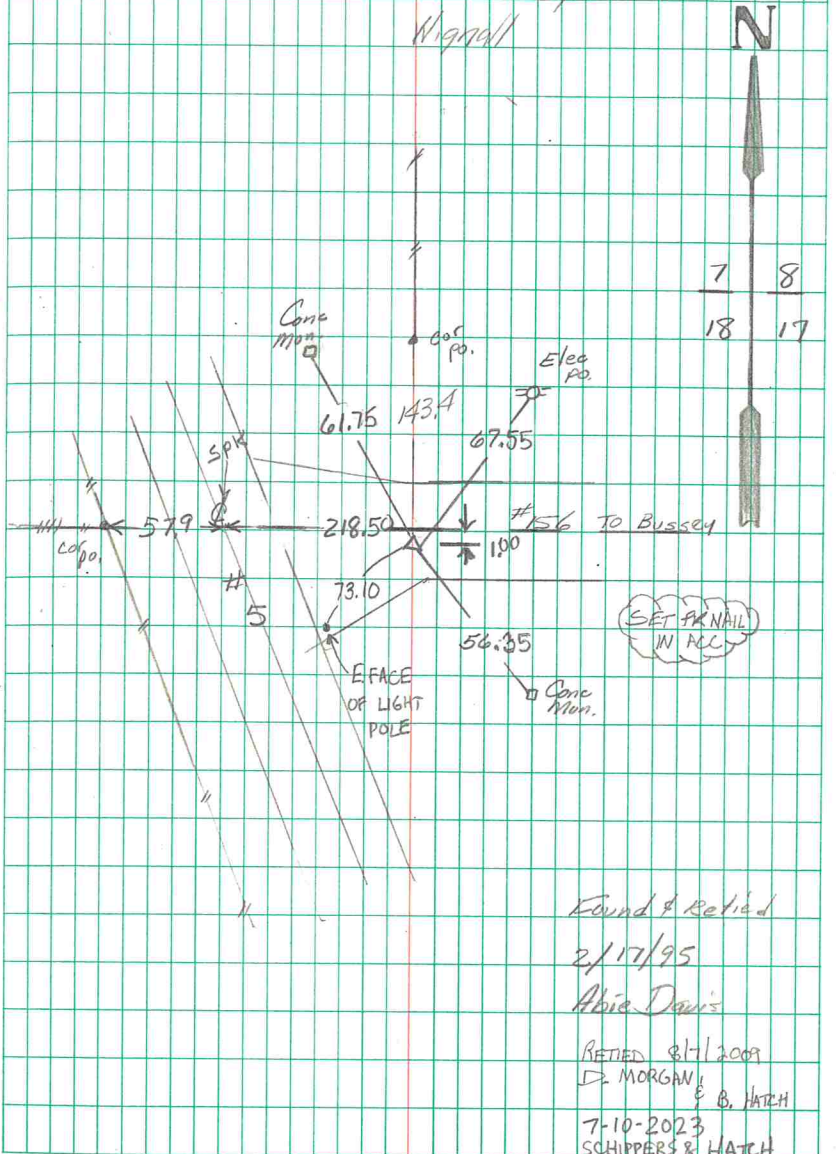 N
7 8
18 17
Conc
Mon.
cor
po.
Elec
po.
61.75
143.4
67.55
SPK
℄
57.9
218.50
#156 TO BUSSEY
1.00
cor
po.
#
5
73.10
56.35
SET PK NAIL
IN ACC
E FACE
OF LIGHT
POLE
Conc
Mon.
Found & Retied
2/17/95
Abie Davis
RETIED 8/7/2009
D. MORGAN
& B. HATCH
7-10-2023
SCHIPPERS & HATCH